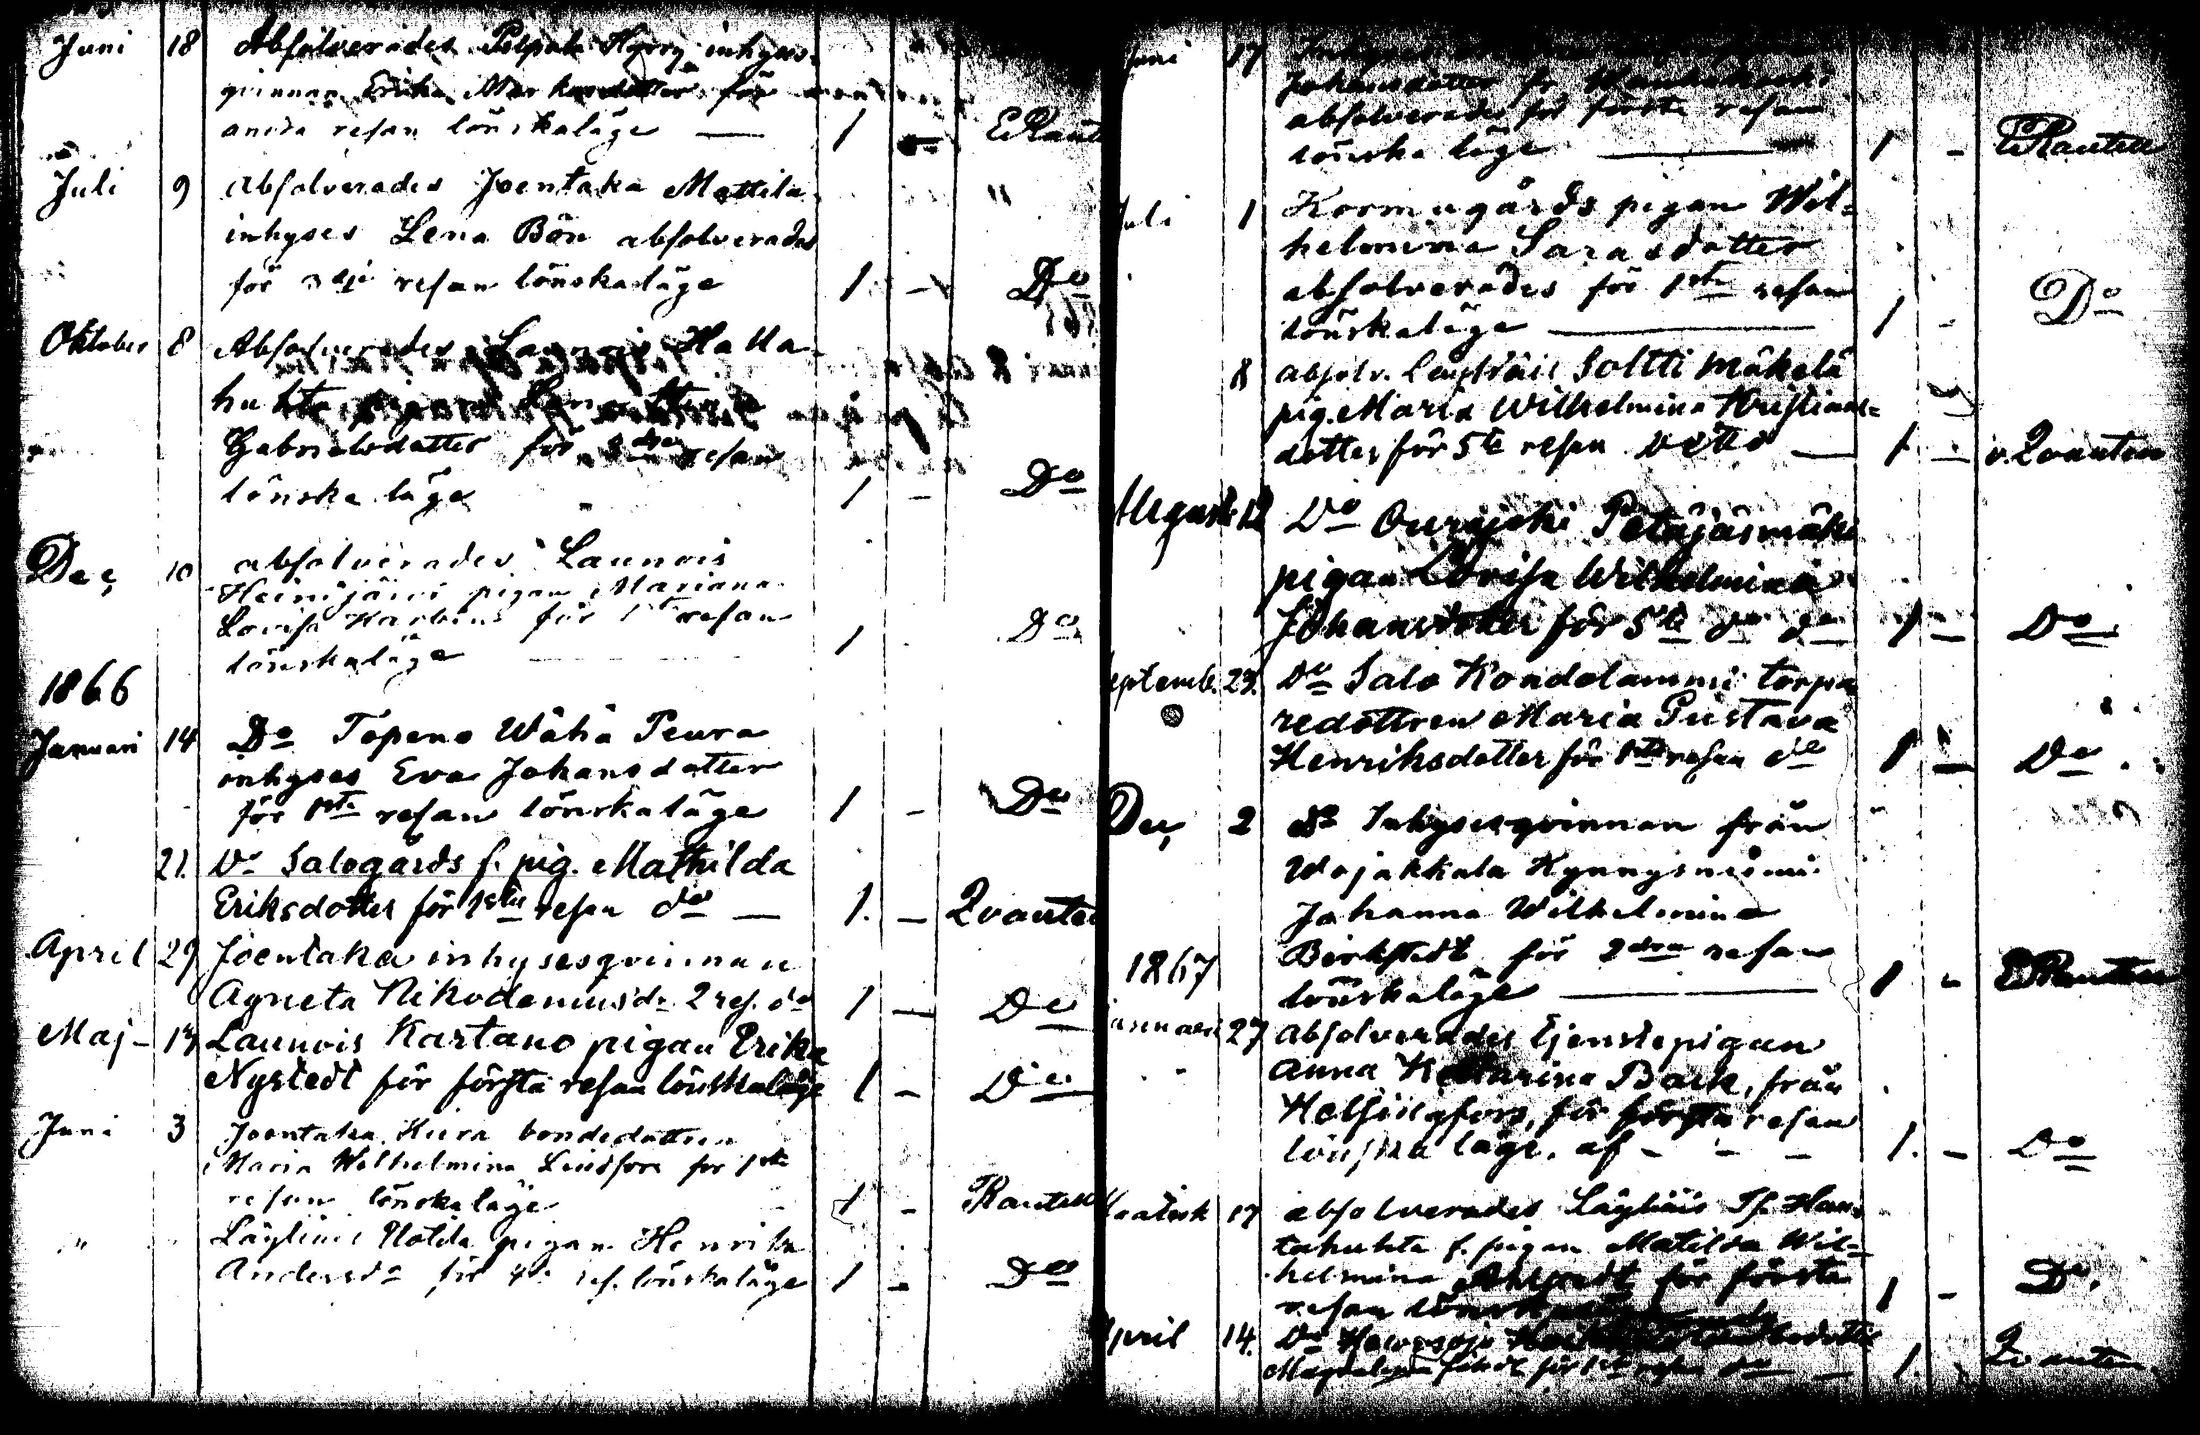 Juni 18 Absolverades Pelpala Hyrry inhyses-
qvinnan Erika Markusdotter för
andra resan lönskaläge — 1 —
Juli 9 Absolverades Joentaka Mattila
inhyses Lena Bön absolverades
för 3dje resan lönskaläge 1 — Do
Oktober 8 Absolverades Launois Halla-
huhta pigan Lena
Gabrielsdotter för resan
lönska läge 1 — Do
Dec, 10 absolverades Launois
Heinijärvi pigan Mariana
Lovisa för 1 resan
lönskaläge 1 Do
1866
Januari 14 Do Topeno Wähä Peura
inhyses Eva Johansdotter
för 1sta resan lönskaläge 1 — Do
21. Do Salogårds f. pig. Mathilda
Eriksdotter för 1sta resan do — 1. — Qvanten
April 29 Joentaka inhysesqvinnan
Agneta Nikodemusdr 2 res. do 1 — Do
Maj — 13 Launois Kartano pigan Erika
Nystedt för första resan lönskaläge 1 — Do
Juni 3 Joentaka Hiera bondedottren
Maria Wilhelmina Lindfors för 1sta
resan lönskaläge 1 —
" Läyliäis Uotila pigan Henrika
Andersdr för 4 res. lönskaläge 1 — Do
Juni 17
Johansdotter fr
absolverades för första resan
lönska läge — 1 —
Juli 1 Kormugårds pigan Wil-
helmina Sarasdotter
absolverades för 1sta resan
lönskaläge — 1 — Do
8 absolv. Läyliäis Soltti Mäkelä
pig. Maria Wilhelmina Kristians-
dotter för 5te resan ditto — 1 — v. Qvanten
August 12 Do Ourajoki Petäjäsmäki
pigan Lovisa Wilhelmina
Johansdotter för 5te do do 1 — Do
Septemb. 23. Do Salo Kondolammi torpa-
redottren Maria Gustava
Henriksdotter för 1sta resan do 1 — Do
Dec, 2 do Inhysesqvinnan från
Wojakkala Kynnysniemi
Johanna Wilhelmina
Birkstedt för 2dra resan
1867
lönskaläge — 1 —
Januari 27 absolverades tjenstepigan
Anna Kattarina Back, från
Helsingfors, för första resan
lönska läge. af — — — 1. — Do
Martsk 17 absolverades Läyliäis
f. pigan Matilda Wil-
helmina för första
resan 1 — Do.
April 14. Do
för 1sta resan do — 1. Qvanten